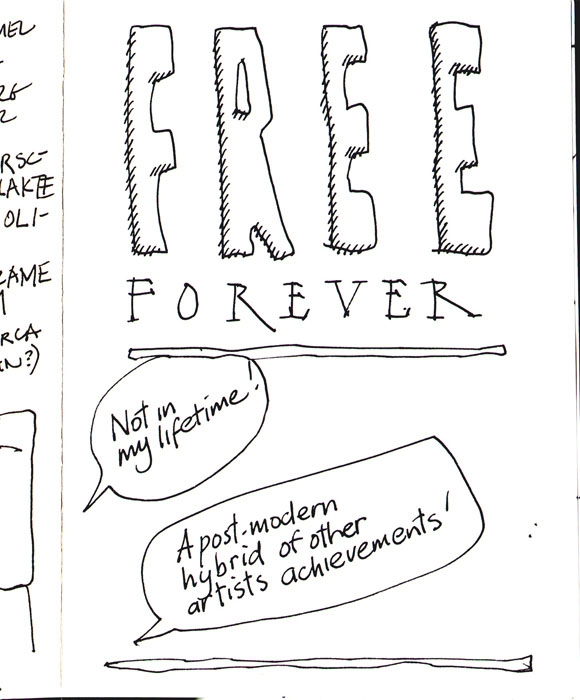 RSC-
LAKE
OLI-
RAME
RCA
IN?)
FREE
FOREVER
Not in
my lifetime!
A post-modern
hybrid of other
artists achievements'